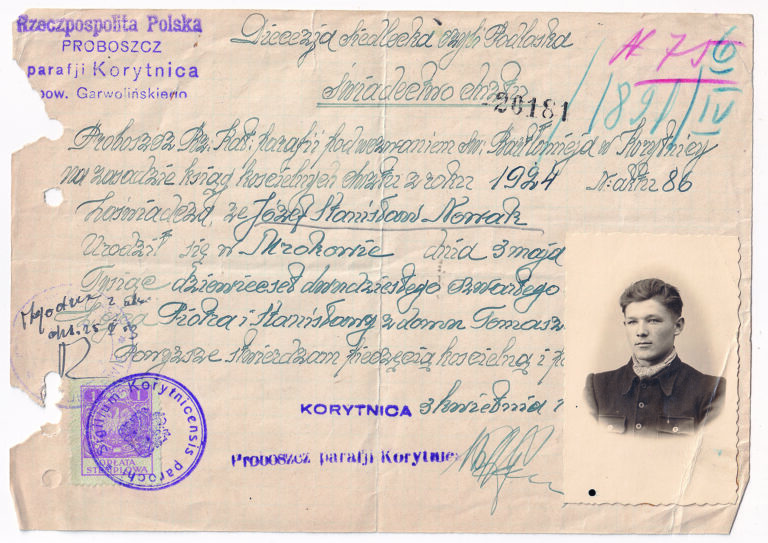 Rzeczpospolita Polska
PROBOSZCZ
parafji Korytnica
pow. Garwolińskiego
Diecezja Siedlecka czyli Podlaska
Świadectwo chrztu
20181
N 756
1891/IV
Proboszcz Rz. Kat. parafii pod wezwaniem św. Bartłomieja w Korytnicy
na zasadzie ksiąg kościelnych chrztu z roku 1924 N: aktu 86
zaświadcza, że Józef Stanisław Nowak
urodził się w Mrokowie dnia 3 maja
Tysiąc dziewięćset dwudziestego czwartego
Piotra i Stanisławy z domu Tomasz
Zgodne z
Powyższe stwierdzam pieczęcią kościelną i
KORYTNICA 3 kwietnia
Proboszcz parafji Korytnic
Sigillum Korytnicensis parochi
1 1
OPŁATA
STEMPLOWA